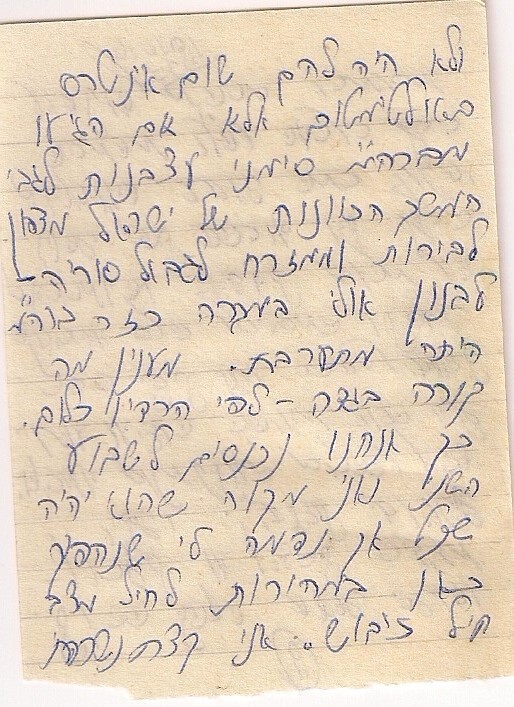 ולא היה להם שום אינטרס
באולטימטום אלא אם הגיעו
מברה"מ סימני עצבנות לגבי
המשך הכוונות של ישראל מצפון
לבירות וממזרח לגבול סוריה-
לבנון אולי במקרה כזה ברה"מ
היתה מתערבת. מענין מה
קורה בגדה - לפי הרדיו כלום.
כך אנחנו נכנסים לשבוע
השני ואני מקוה שהוא יהיה
שקל אך נדמה לי שנהפוך
כאן במהירות לחיל מצב
חיל כיבוש. אני קצת